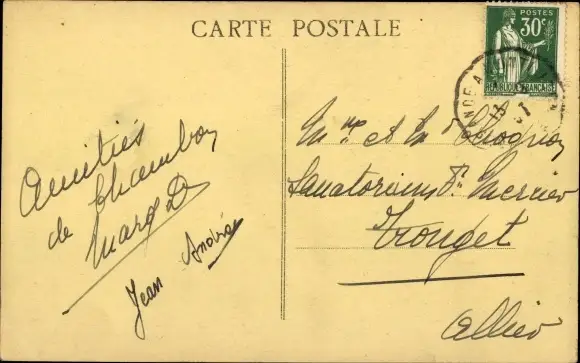 CARTE POSTALE
POSTES
30c
REPUBLIQUE FRANCAISE
Amitiés
de Chambon
Marg D
Jean André
Mme et M
Sanatorium Dr Mercier
Tronget
Allier